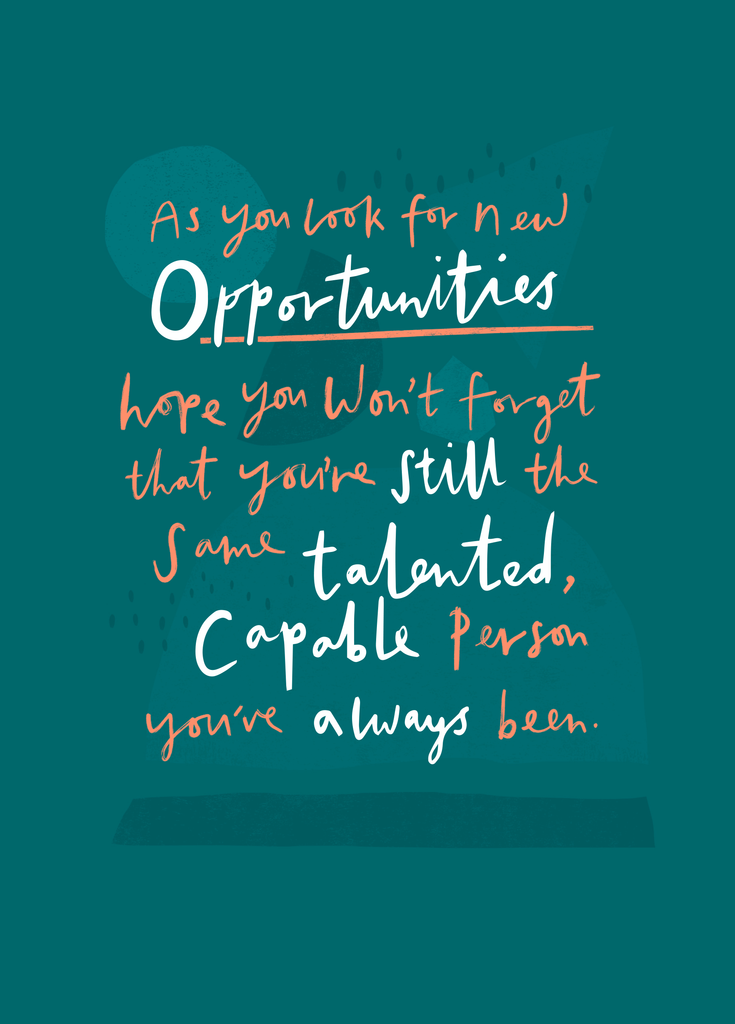 As you look for new
Opportunities
hope you won't forget
that you're still the
same talented,
capable person
you've always been.